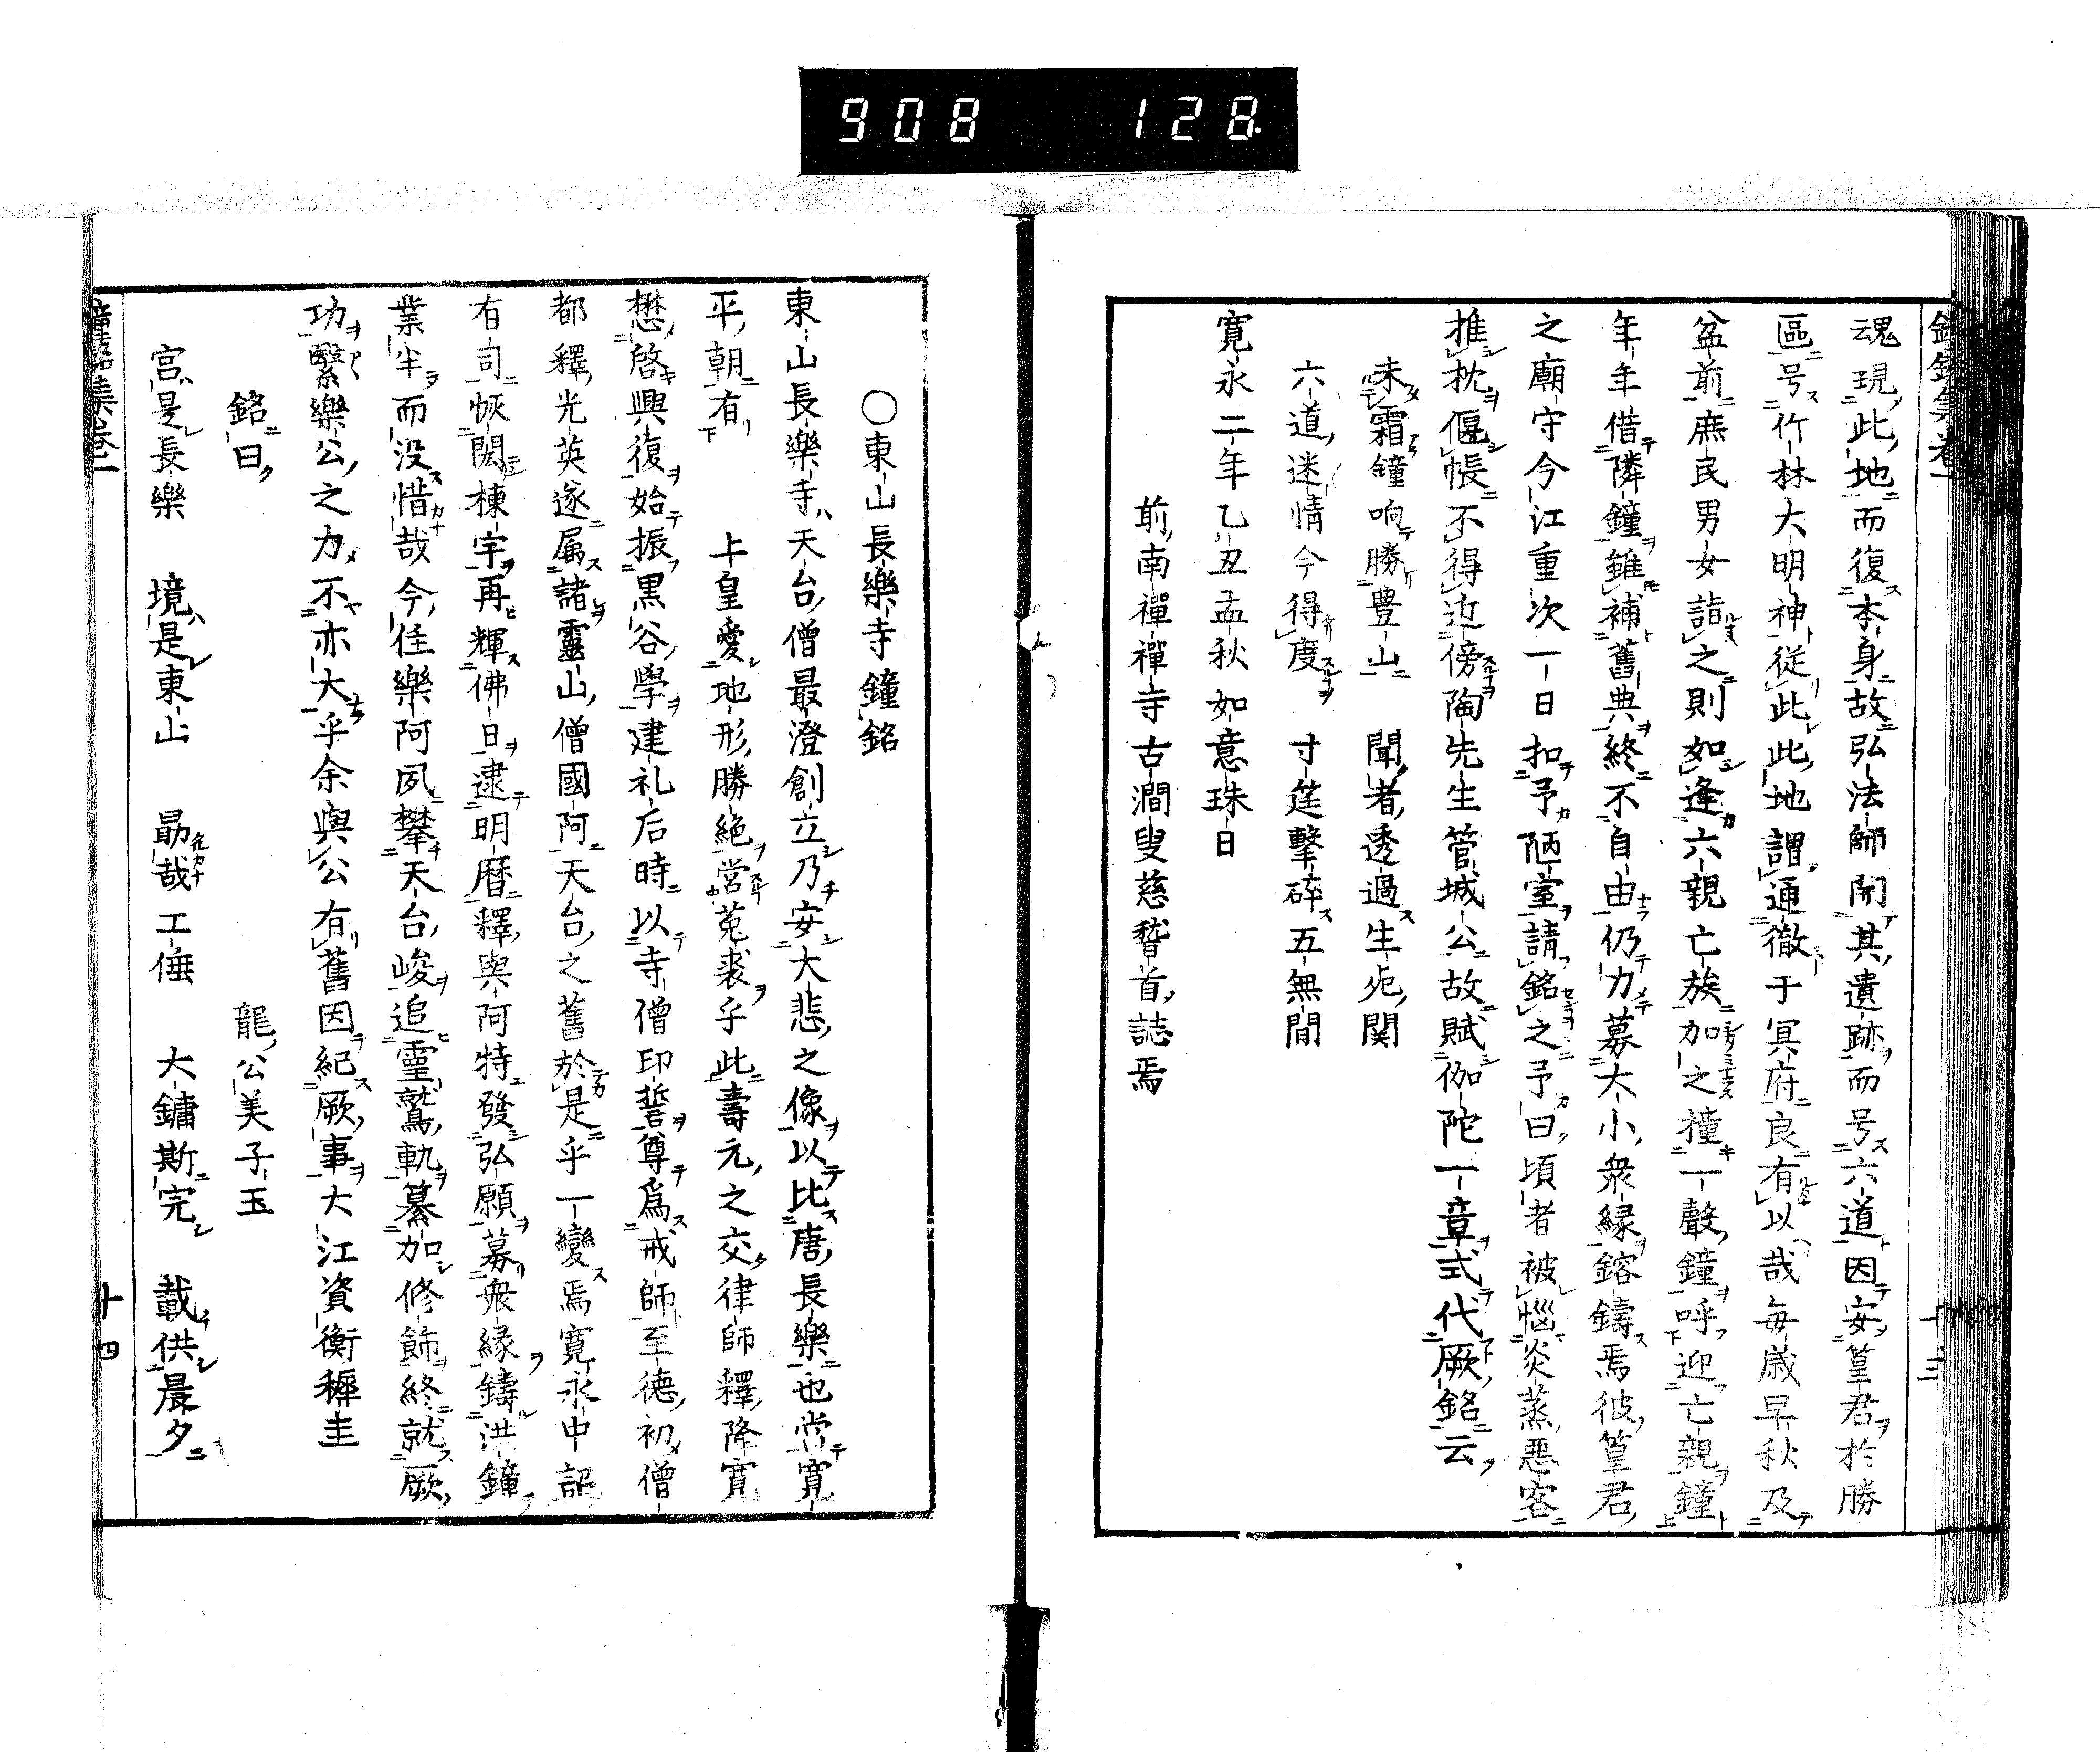 908 128
魂現此地而復本身故弘法師開其遺跡而号六道因安篁君於勝
區号竹林大明神従此此地謂通徹于冥府良有以哉毎歳早秋及
盆前庶民男女詣之則如逢六親亡族加之撞一聲鐘呼迎亡親鐘
年年借隣鐘雖補舊典終不自由仍力募大小衆縁鎔鑄焉彼篁君
之廟守今江重次一日扣予陋室請銘之予曰頃者被惱炎蒸悪客
推枕偃帳不得近傍陶先生管城公故賦伽陀一章式代厥銘云
未霜鐘响勝豊山 聞者透過生死関
六道迷情今得度 寸筳撃砕五無間
寛永二年乙丑孟秋如意珠日
前南禪禪寺古澗叟慈稽首誌焉
〇東山長樂寺鐘銘
東山長樂寺天台僧最澄創立乃安大悲之像以比唐長樂也甞寛
平朝有 上皇愛地形勝絶営菟裘乎此壽元之交律師釋降寛
懋啓興復始振黒谷學建礼后時以寺僧印誓尊為戒師至德初僧
都釋光英遂属諸靈山僧國阿天台之舊於是乎一變焉寛永中詔
有司恢閎棟宇再輝佛日逮明暦釋與阿特發弘願募衆縁鑄洪鐘
業半而没惜哉今住樂阿夙攀天台峻追霊鷲軌纂加修飾終就厥
功繄樂公之力不亦大乎余與公有舊因紀厥事大江資衡穉圭
銘曰 龍公美子玉
宮是長樂 境是東山 勗哉工倕 大鏞斯完 載供晨夕
鐘銘集巻一 十四